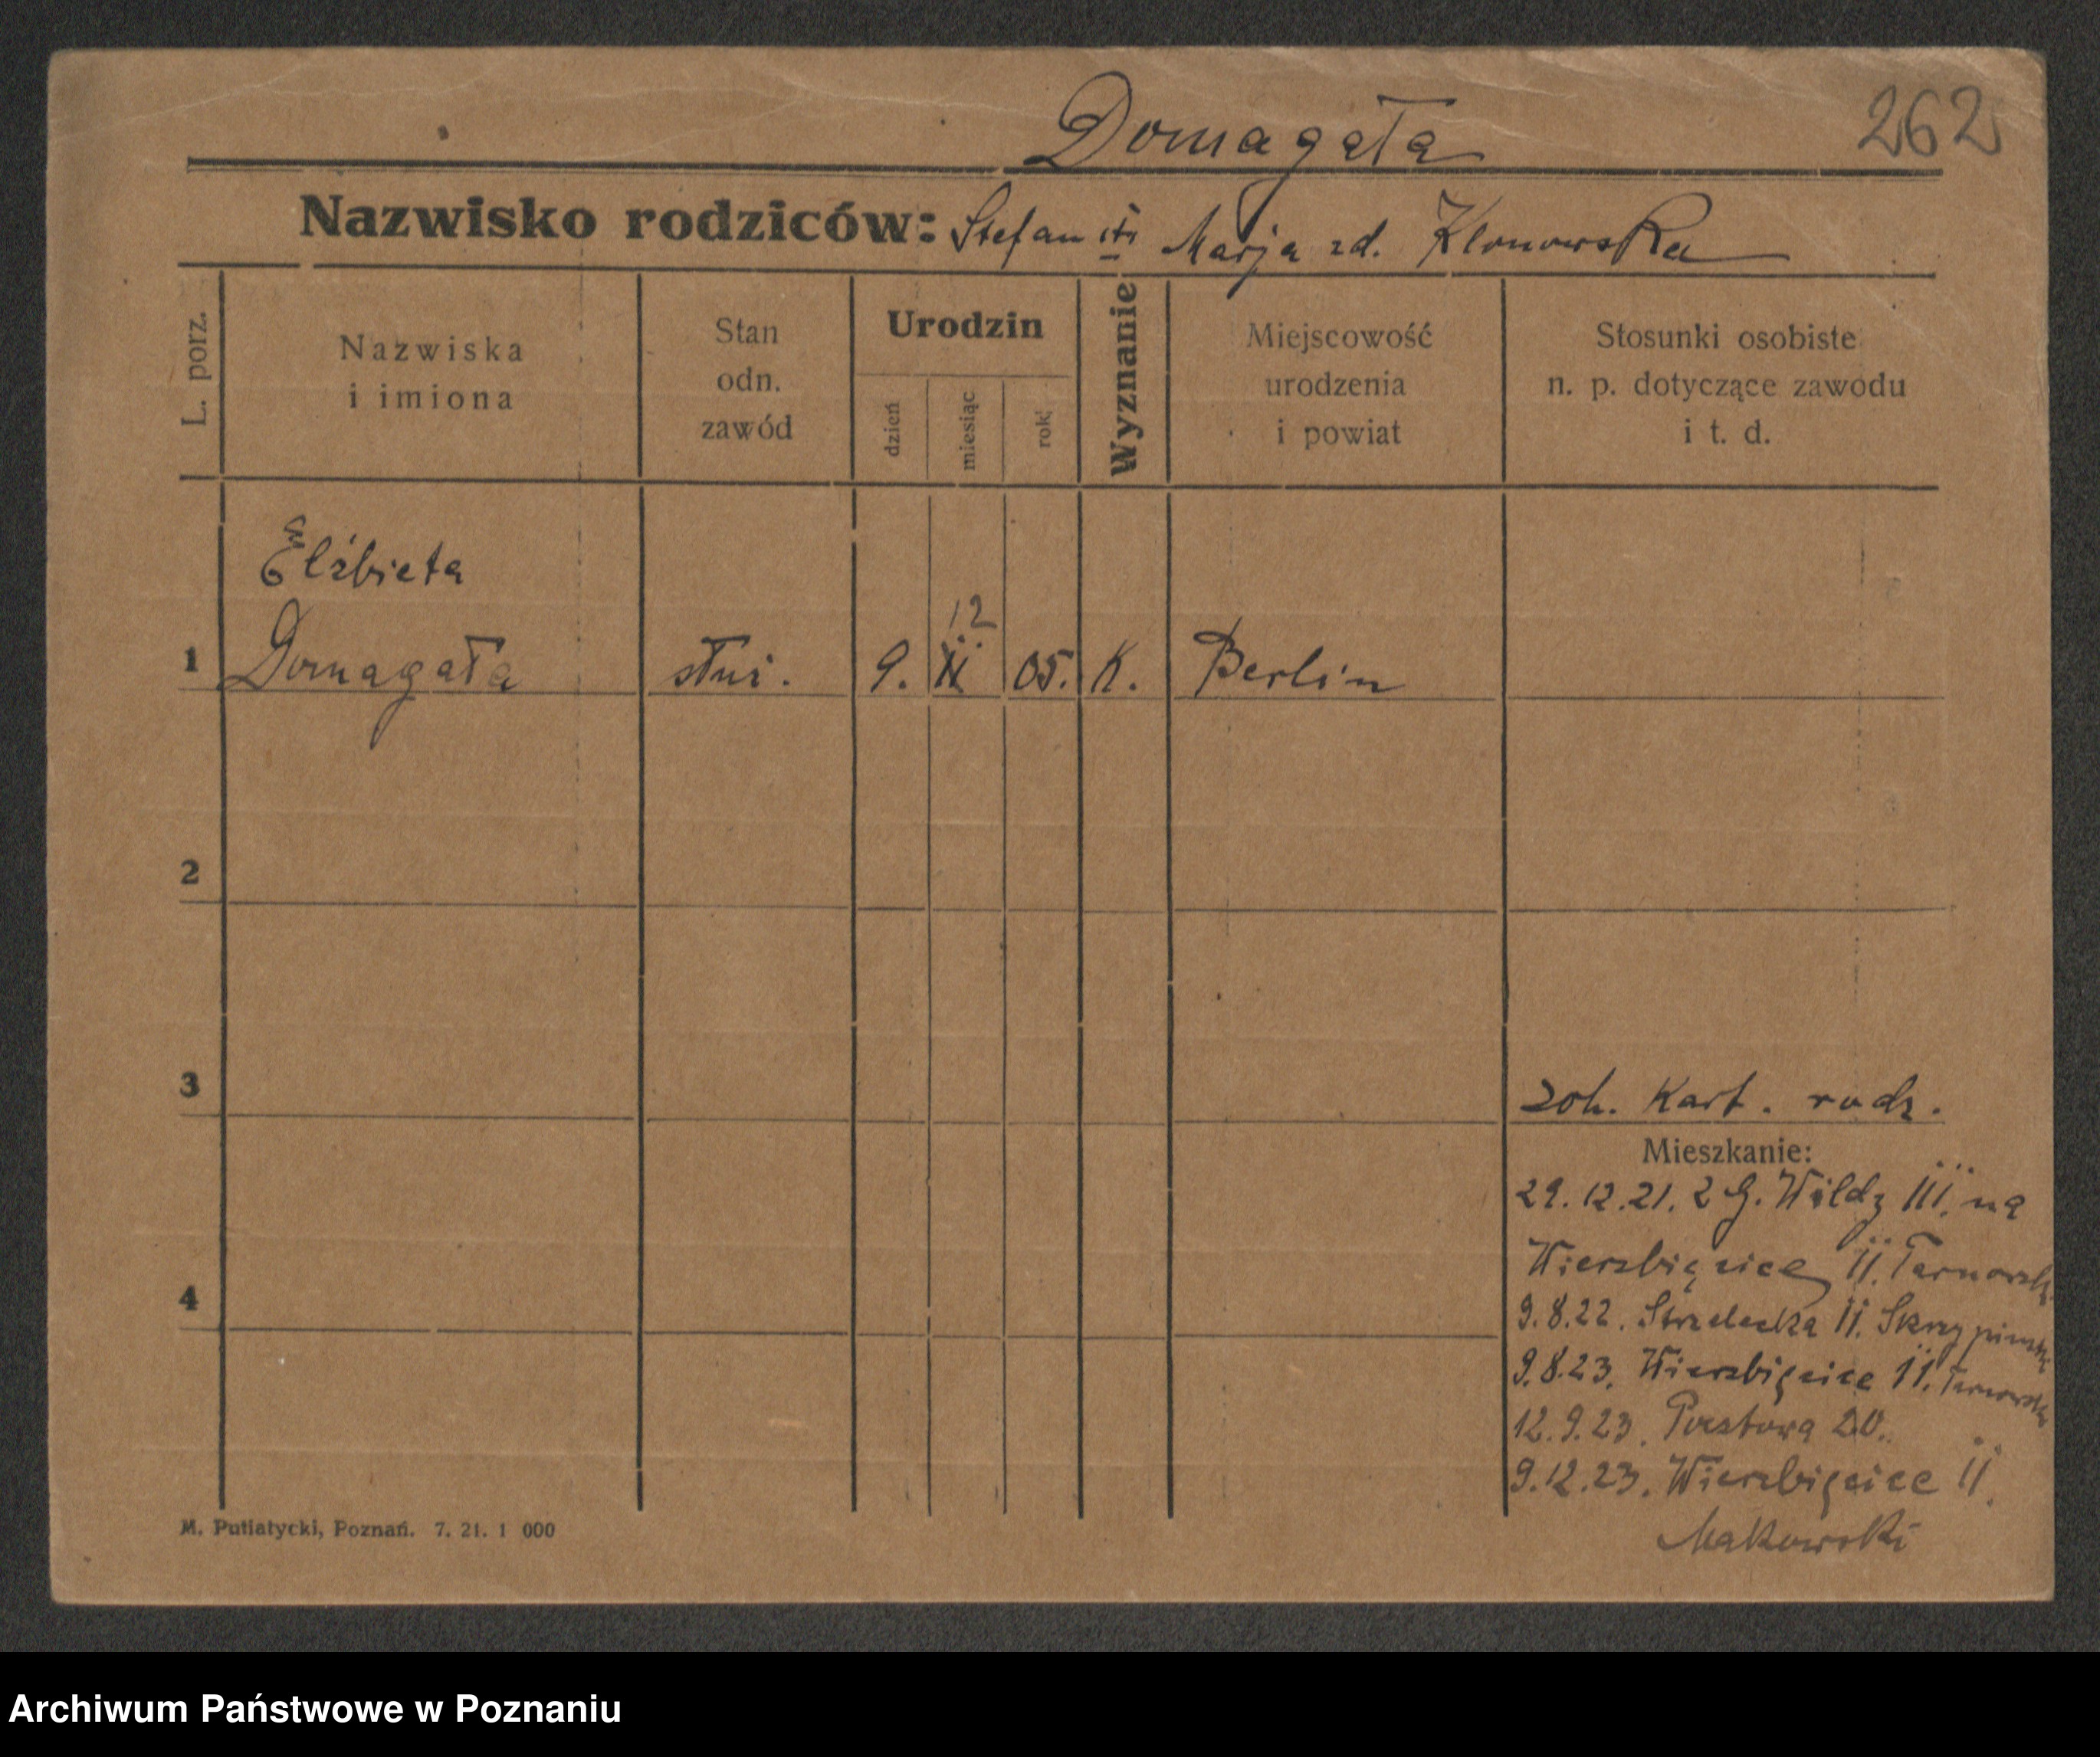 Domagała
262
Nazwisko rodziców: Stefan Marja zd. Klonowska
L. porz.
Nazwiska
i imiona
Stan
odn.
zawód
Urodzin
dzień
miesiąc
rok
Wyznanie
Miejscowość
urodzenia
i powiat
Stosunki osobiste
n. p. dotyczące zawodu
i t. d.
Elżbieta
12
1 Domagała służ. 9. 05. K. Berlin
2
3
zob. Kart. rodz.
Mieszkanie:
29.12.21. 2 G. Wildy III. na
Wierzbięcice II. Tarnowski
4
9.8.22. Strzelecka II. Skrzypinski
9.8.23. Wierzbięcice II. Tarnowski
12.9.23. Pocztowa 20.
9.12.23. Wierzbięcice II.
Makowski
M. Putiatycki, Poznań. 7. 21. 1 000
Archiwum Państwowe w Poznaniu